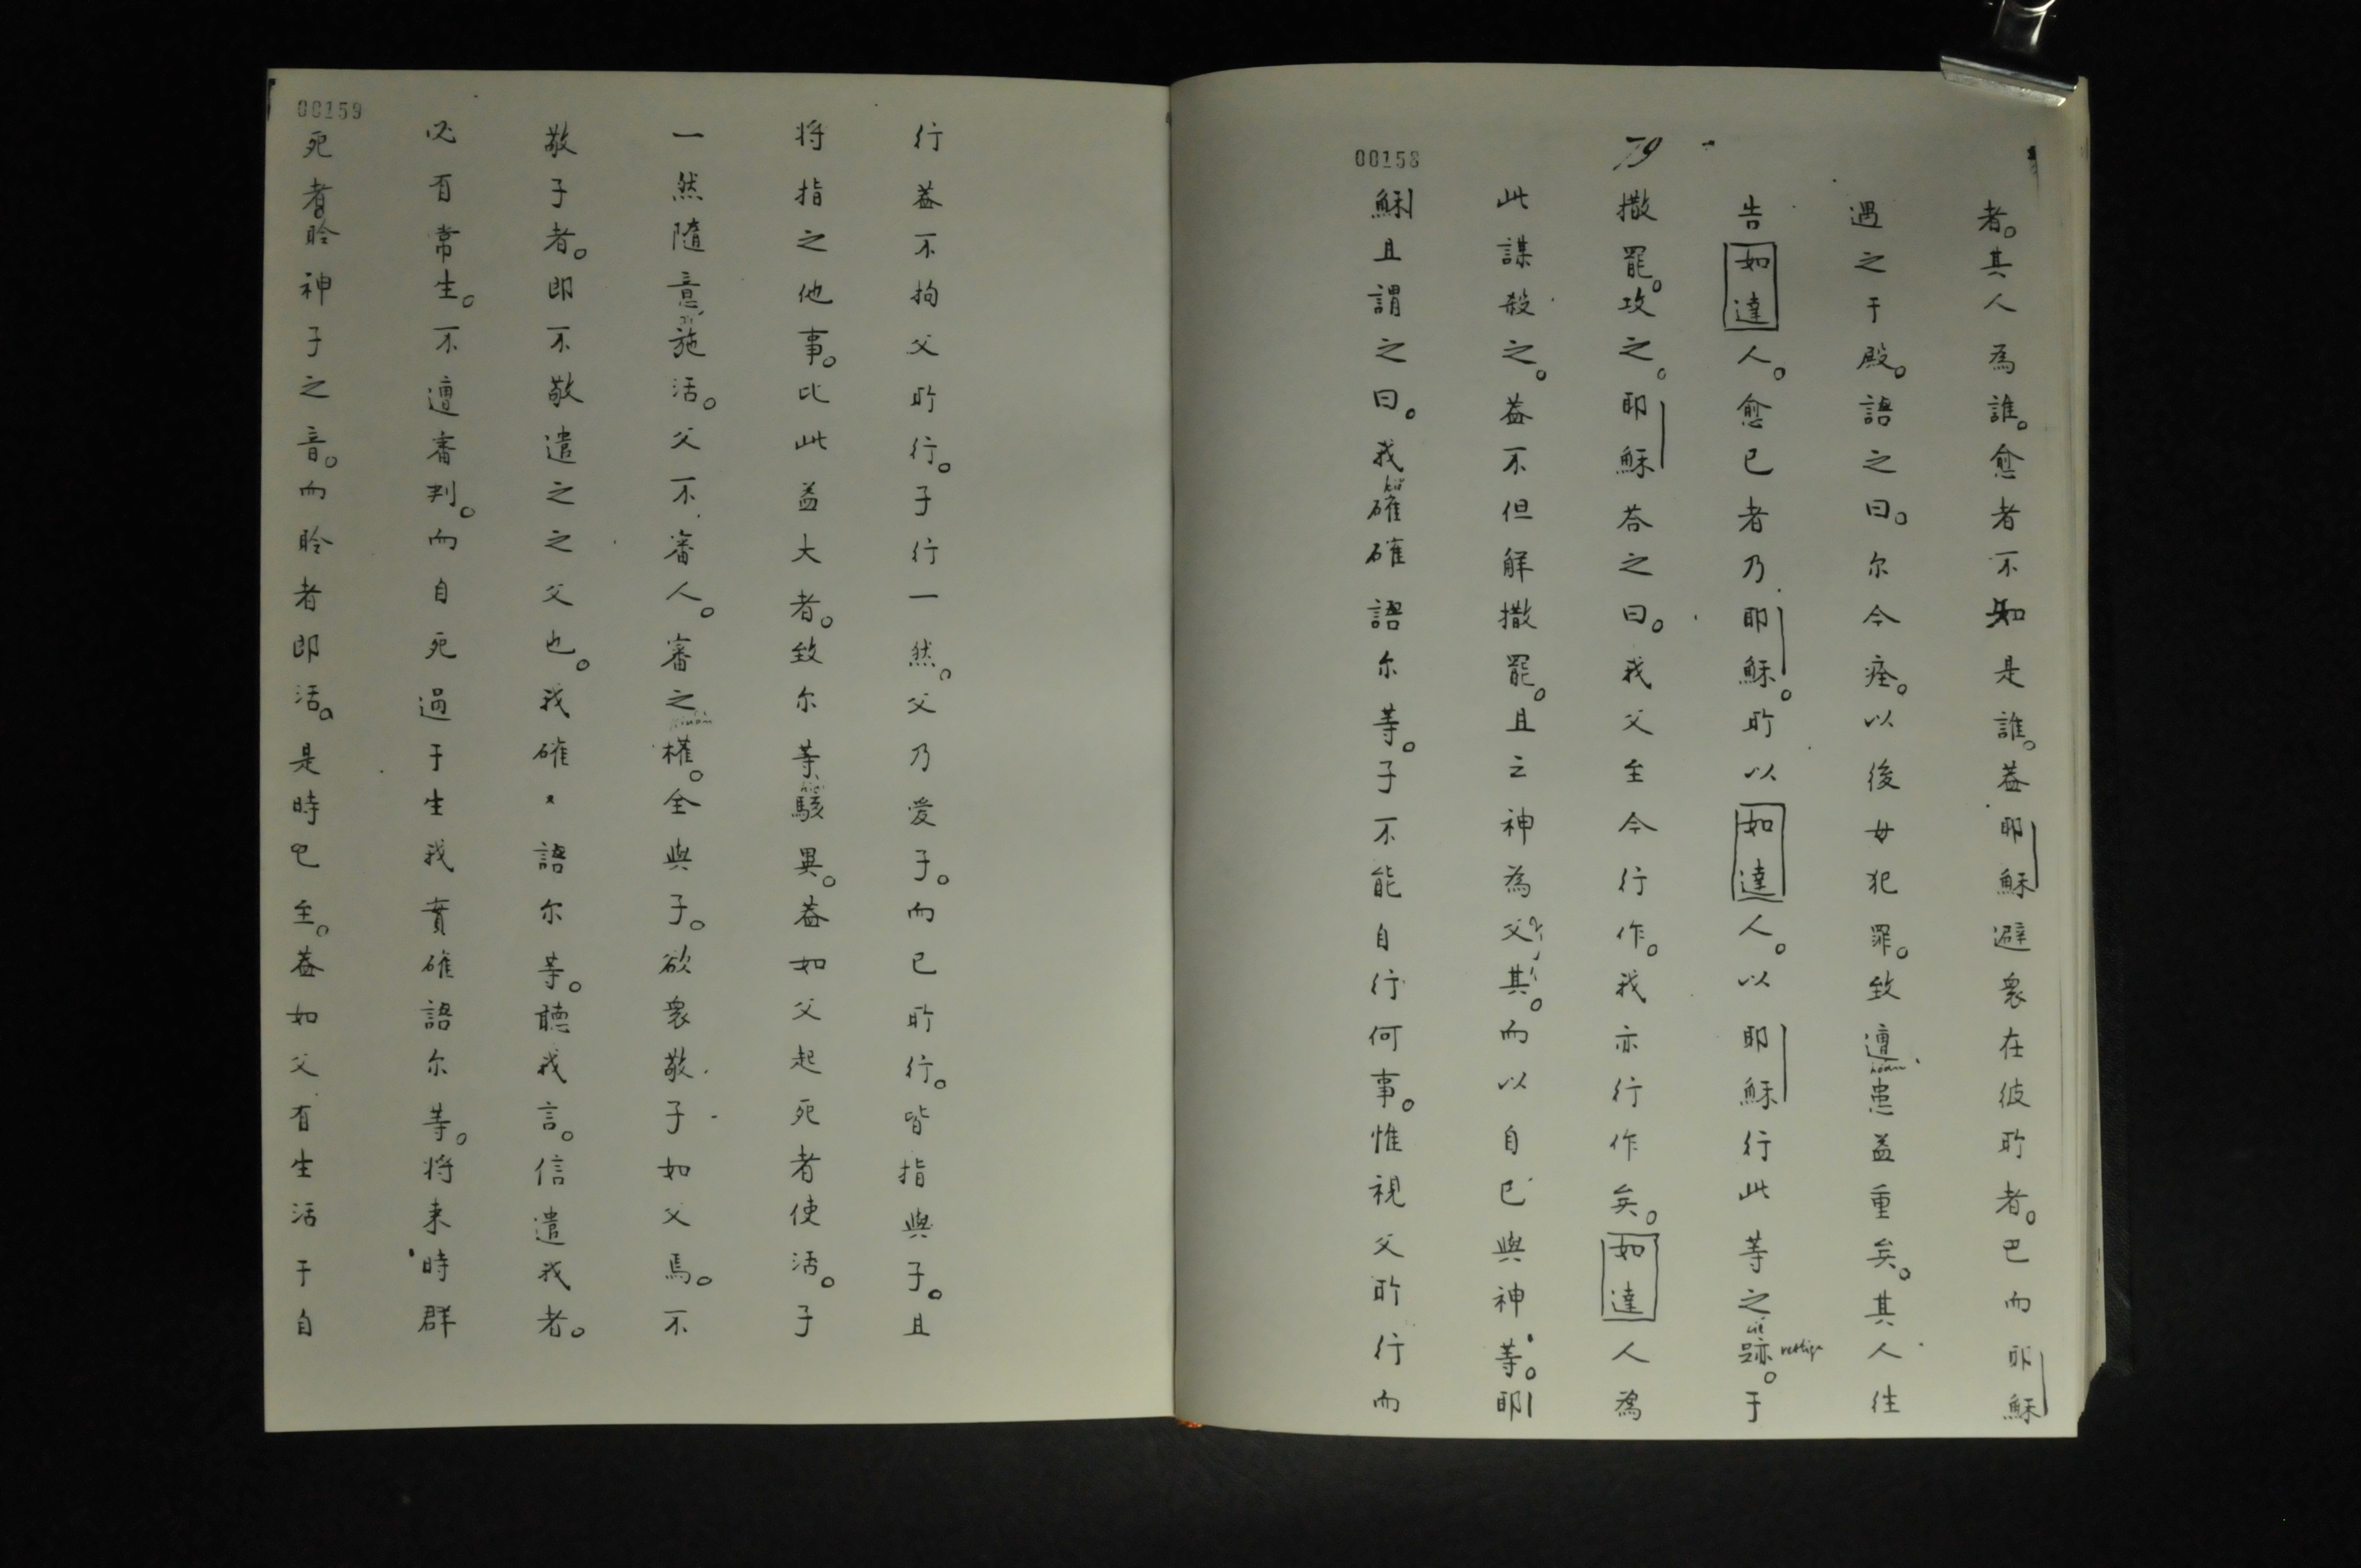 00158
79
者。其人為誰。愈者不知是誰。葢耶穌避衆在彼所者。巴而耶穌
遇之于殿。語之曰。尔今痊。以後毋犯罪。致遭患益重矣。其人往
告如達人。愈已者乃耶穌。所以如達人。以耶穌行此等之跡。于
撒罷。攻之。耶穌荅之曰。我父至今行作。我亦行作矣。如達人為
此謀殺之。葢不但解撒罷。且之神為父其。而以自已與神等。耶
穌且謂之曰。我確確語尔等。子不能自行何事。惟視父所行而
00159
行葢不拘父所行。子行一然。父乃愛子。而已所行。皆指與子。且
将指之他事。比此益大者。致尔等駭異。葢如父起死者使活。子
一然隨意施活。父不審人。審之權。全與子。欲衆敬子如父焉。不
敬子者。即不敬遣之之父也。我確〃語尔等。聽我言。信遣我者。
必有常生。不遭審判。而自死過于生我實確語尔等。将来時群
死者聆神子之音。而聆者即活。是時已至。葢如父有生活于自